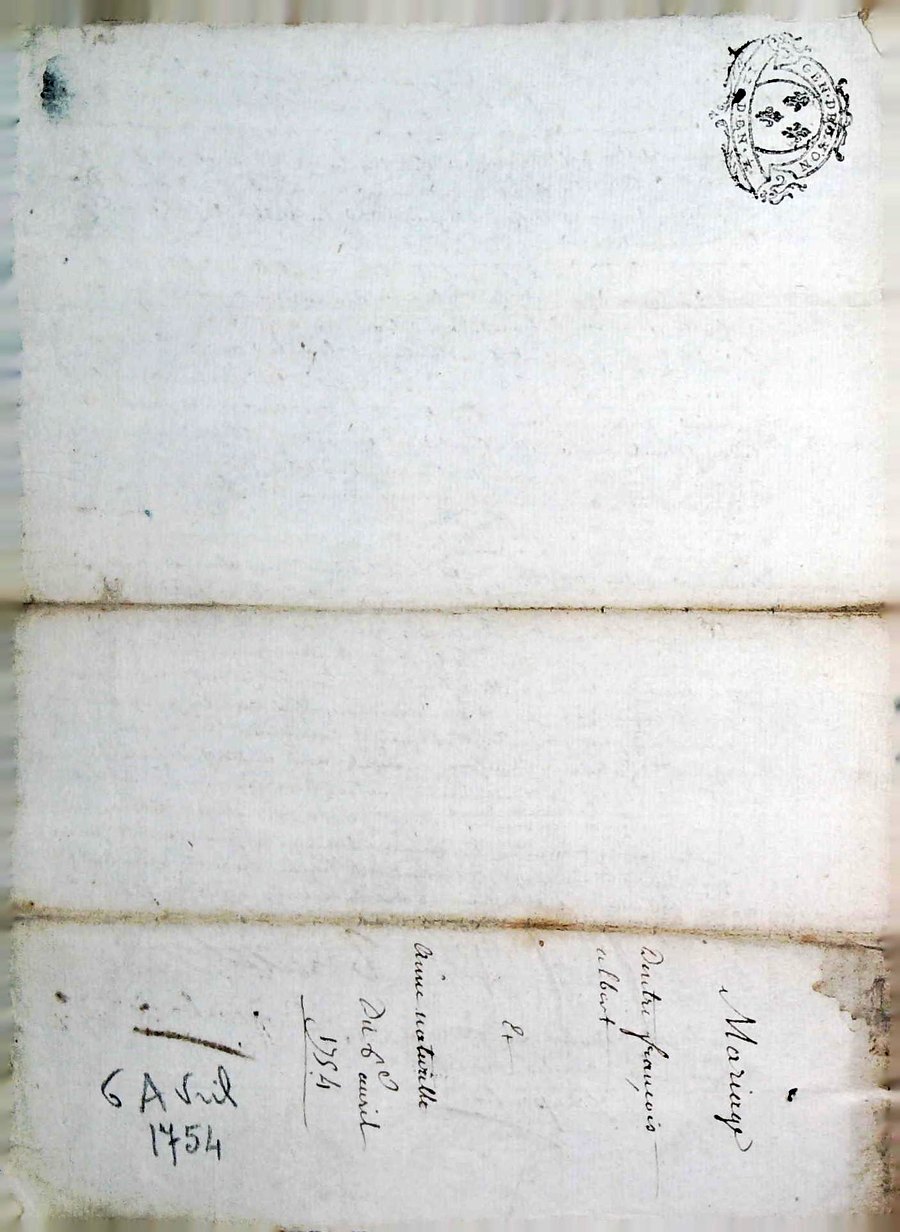 GEN·DE
Mariage
Dentre françois
albert
Et
Anne naturelle
Du 6e avril
1754
6 Avril
1754